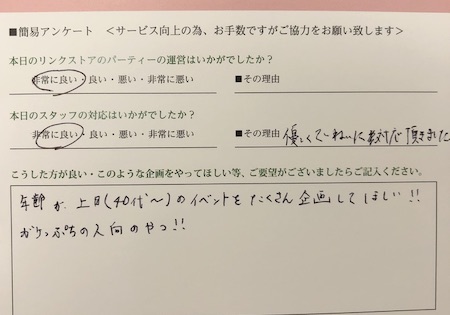 ■簡易アンケート ＜サービス向上の為、お手数ですがご協力をお願い致します＞
本日のリンクストアのパーティーの運営はいかがでしたか？
非常に良い・良い・悪い・非常に悪い ■その理由
本日のスタッフの対応はいかがでしたか？
非常に良い・良い・悪い・非常に悪い ■その理由 優しくていねいに対応頂きました
こうした方が良い・このような企画をやってほしい等、ご要望がございましたらご記入ください。
年齢が上目(40代〜)のイベントをたくさん企画してほしい!!
がけっぷちの人向のやつ!!